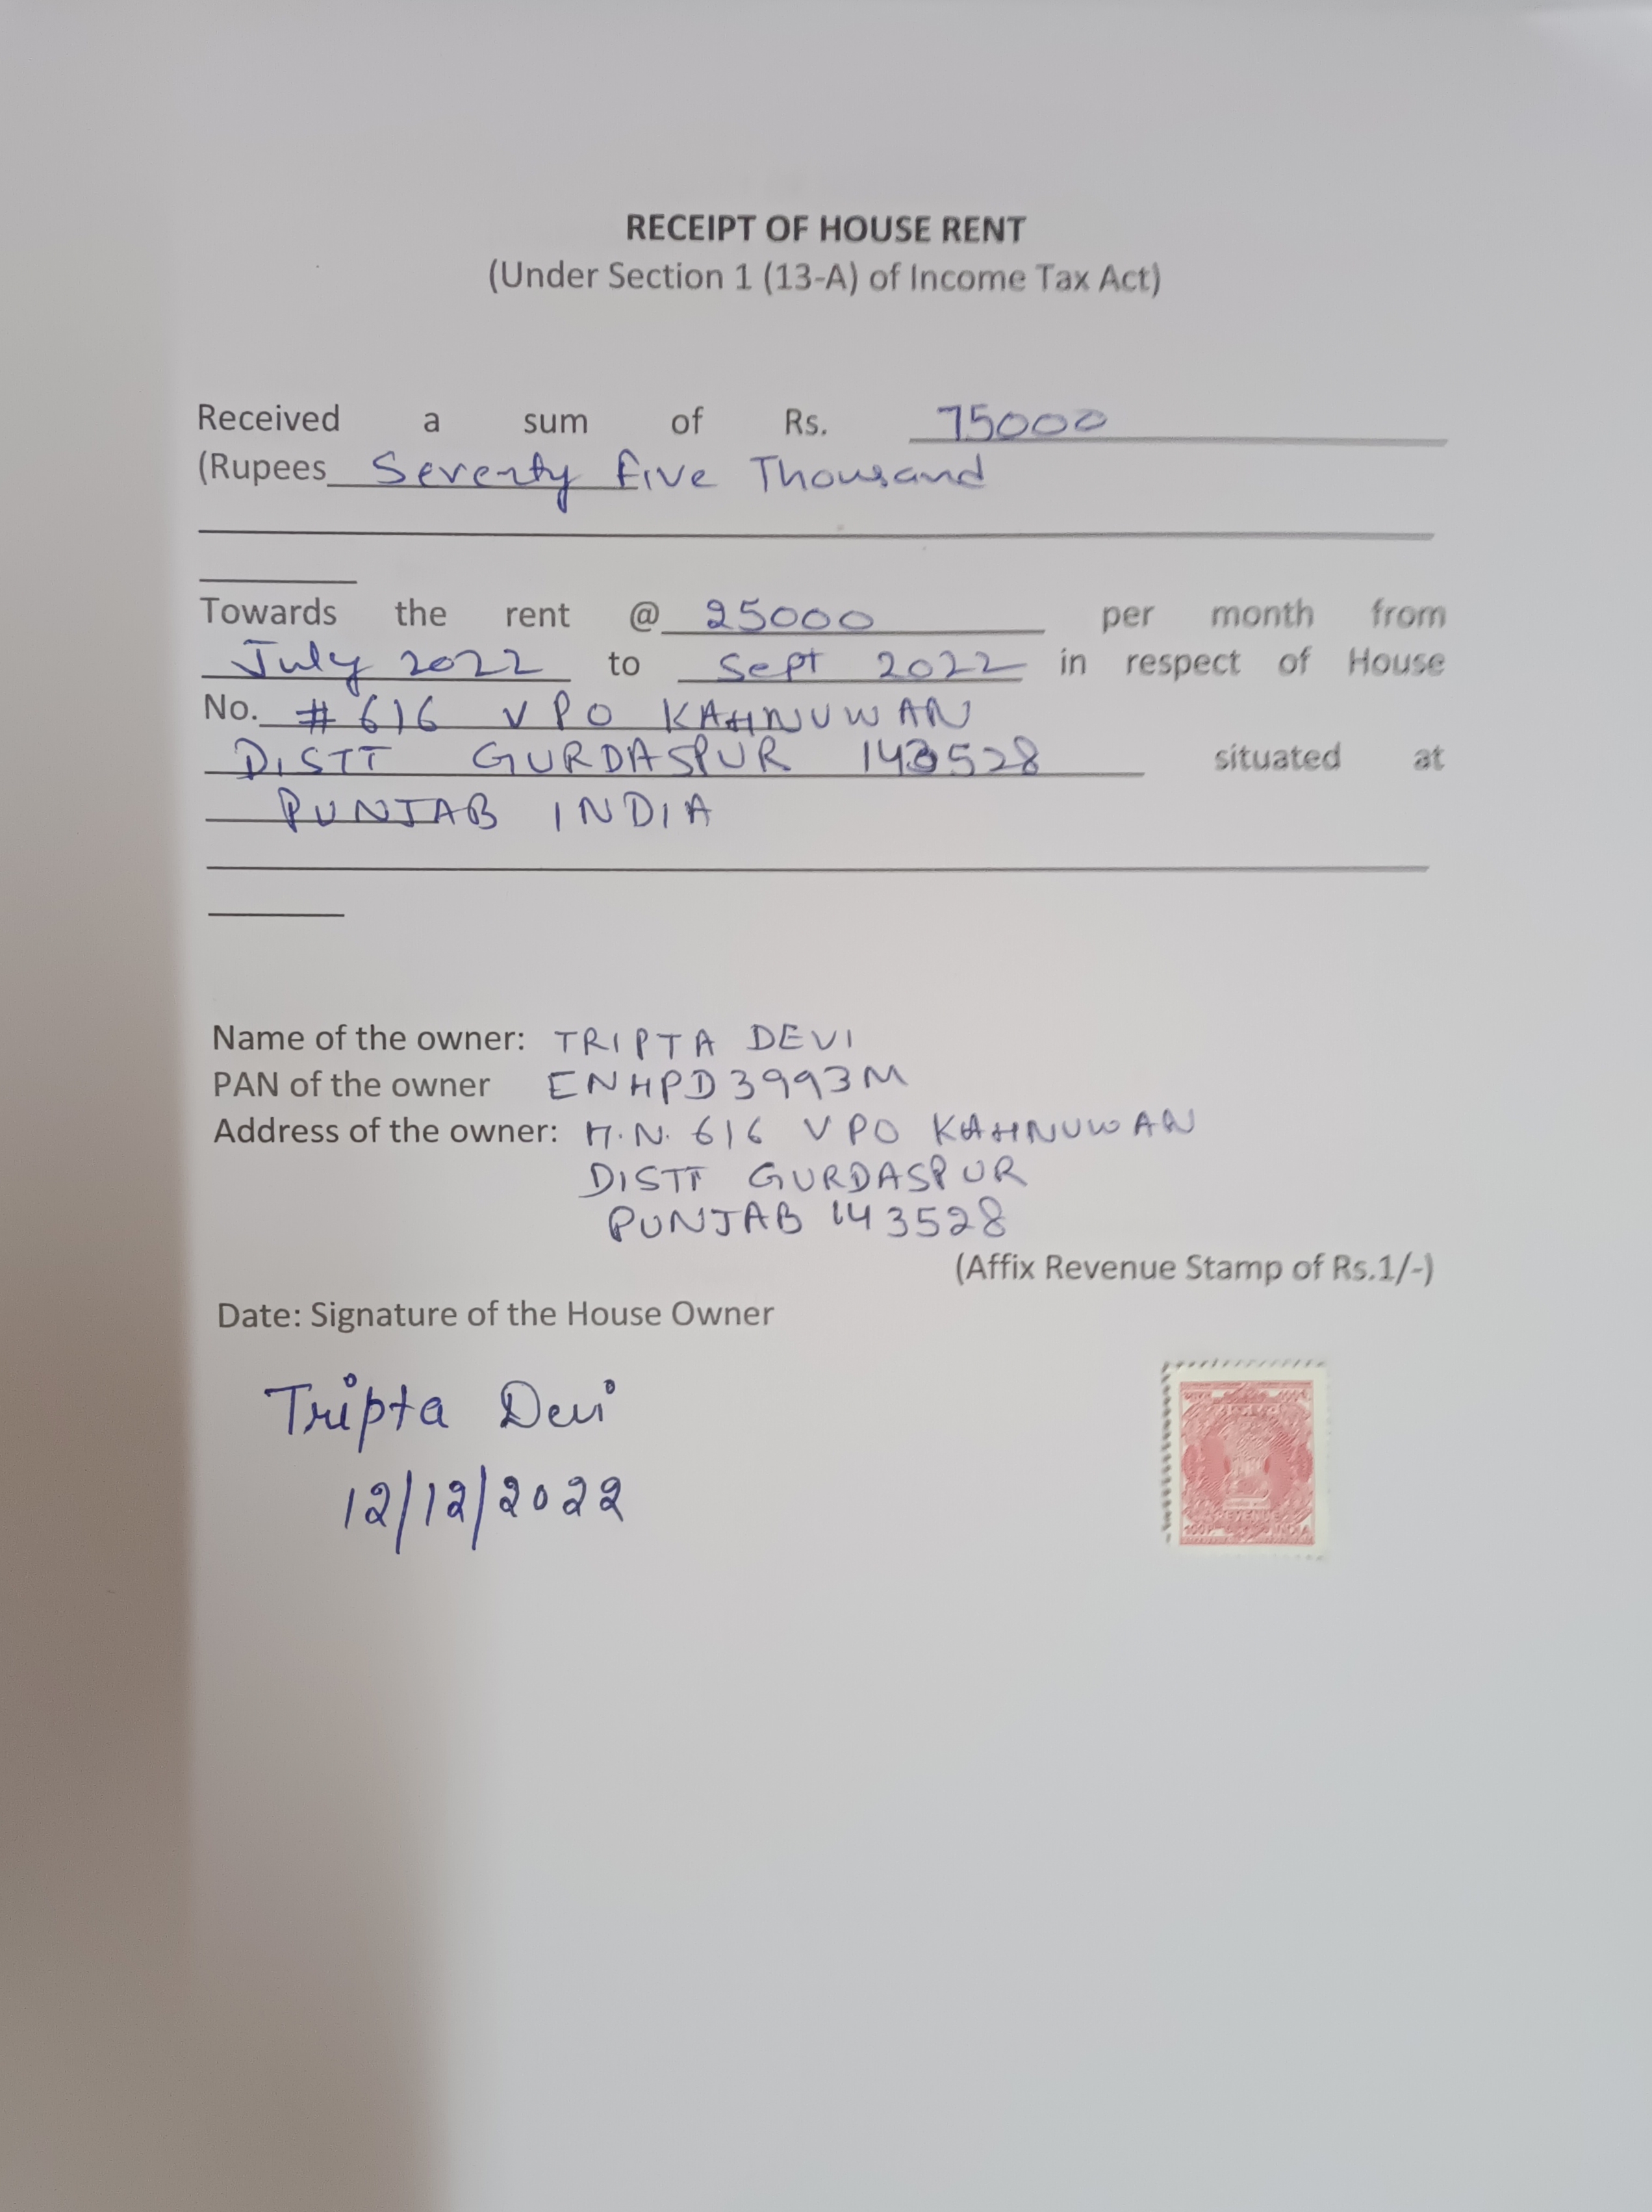 RECEIPT OF HOUSE RENT
(Under Section 1 (13-A) of Income Tax Act)
Received a sum of Rs. 75000
(Rupees Seventy Five Thousand
Towards the rent @ 25000 per month from
July 2022 to Sept 2022 in respect of House
No. # 616 VPO KAHNUWAN
DISTT GURDASPUR 143528 situated at
PUNJAB INDIA
Name of the owner: TRIPTA DEVI
PAN of the owner ENHPD3993M
Address of the owner: H.N. 616 VPO KAHNUWAN
DISTT GURDASPUR
PUNJAB 143528
(Affix Revenue Stamp of Rs.1/-)
Date: Signature of the House Owner
Tripta Devi
12/12/2022
REVENUE
INDIA